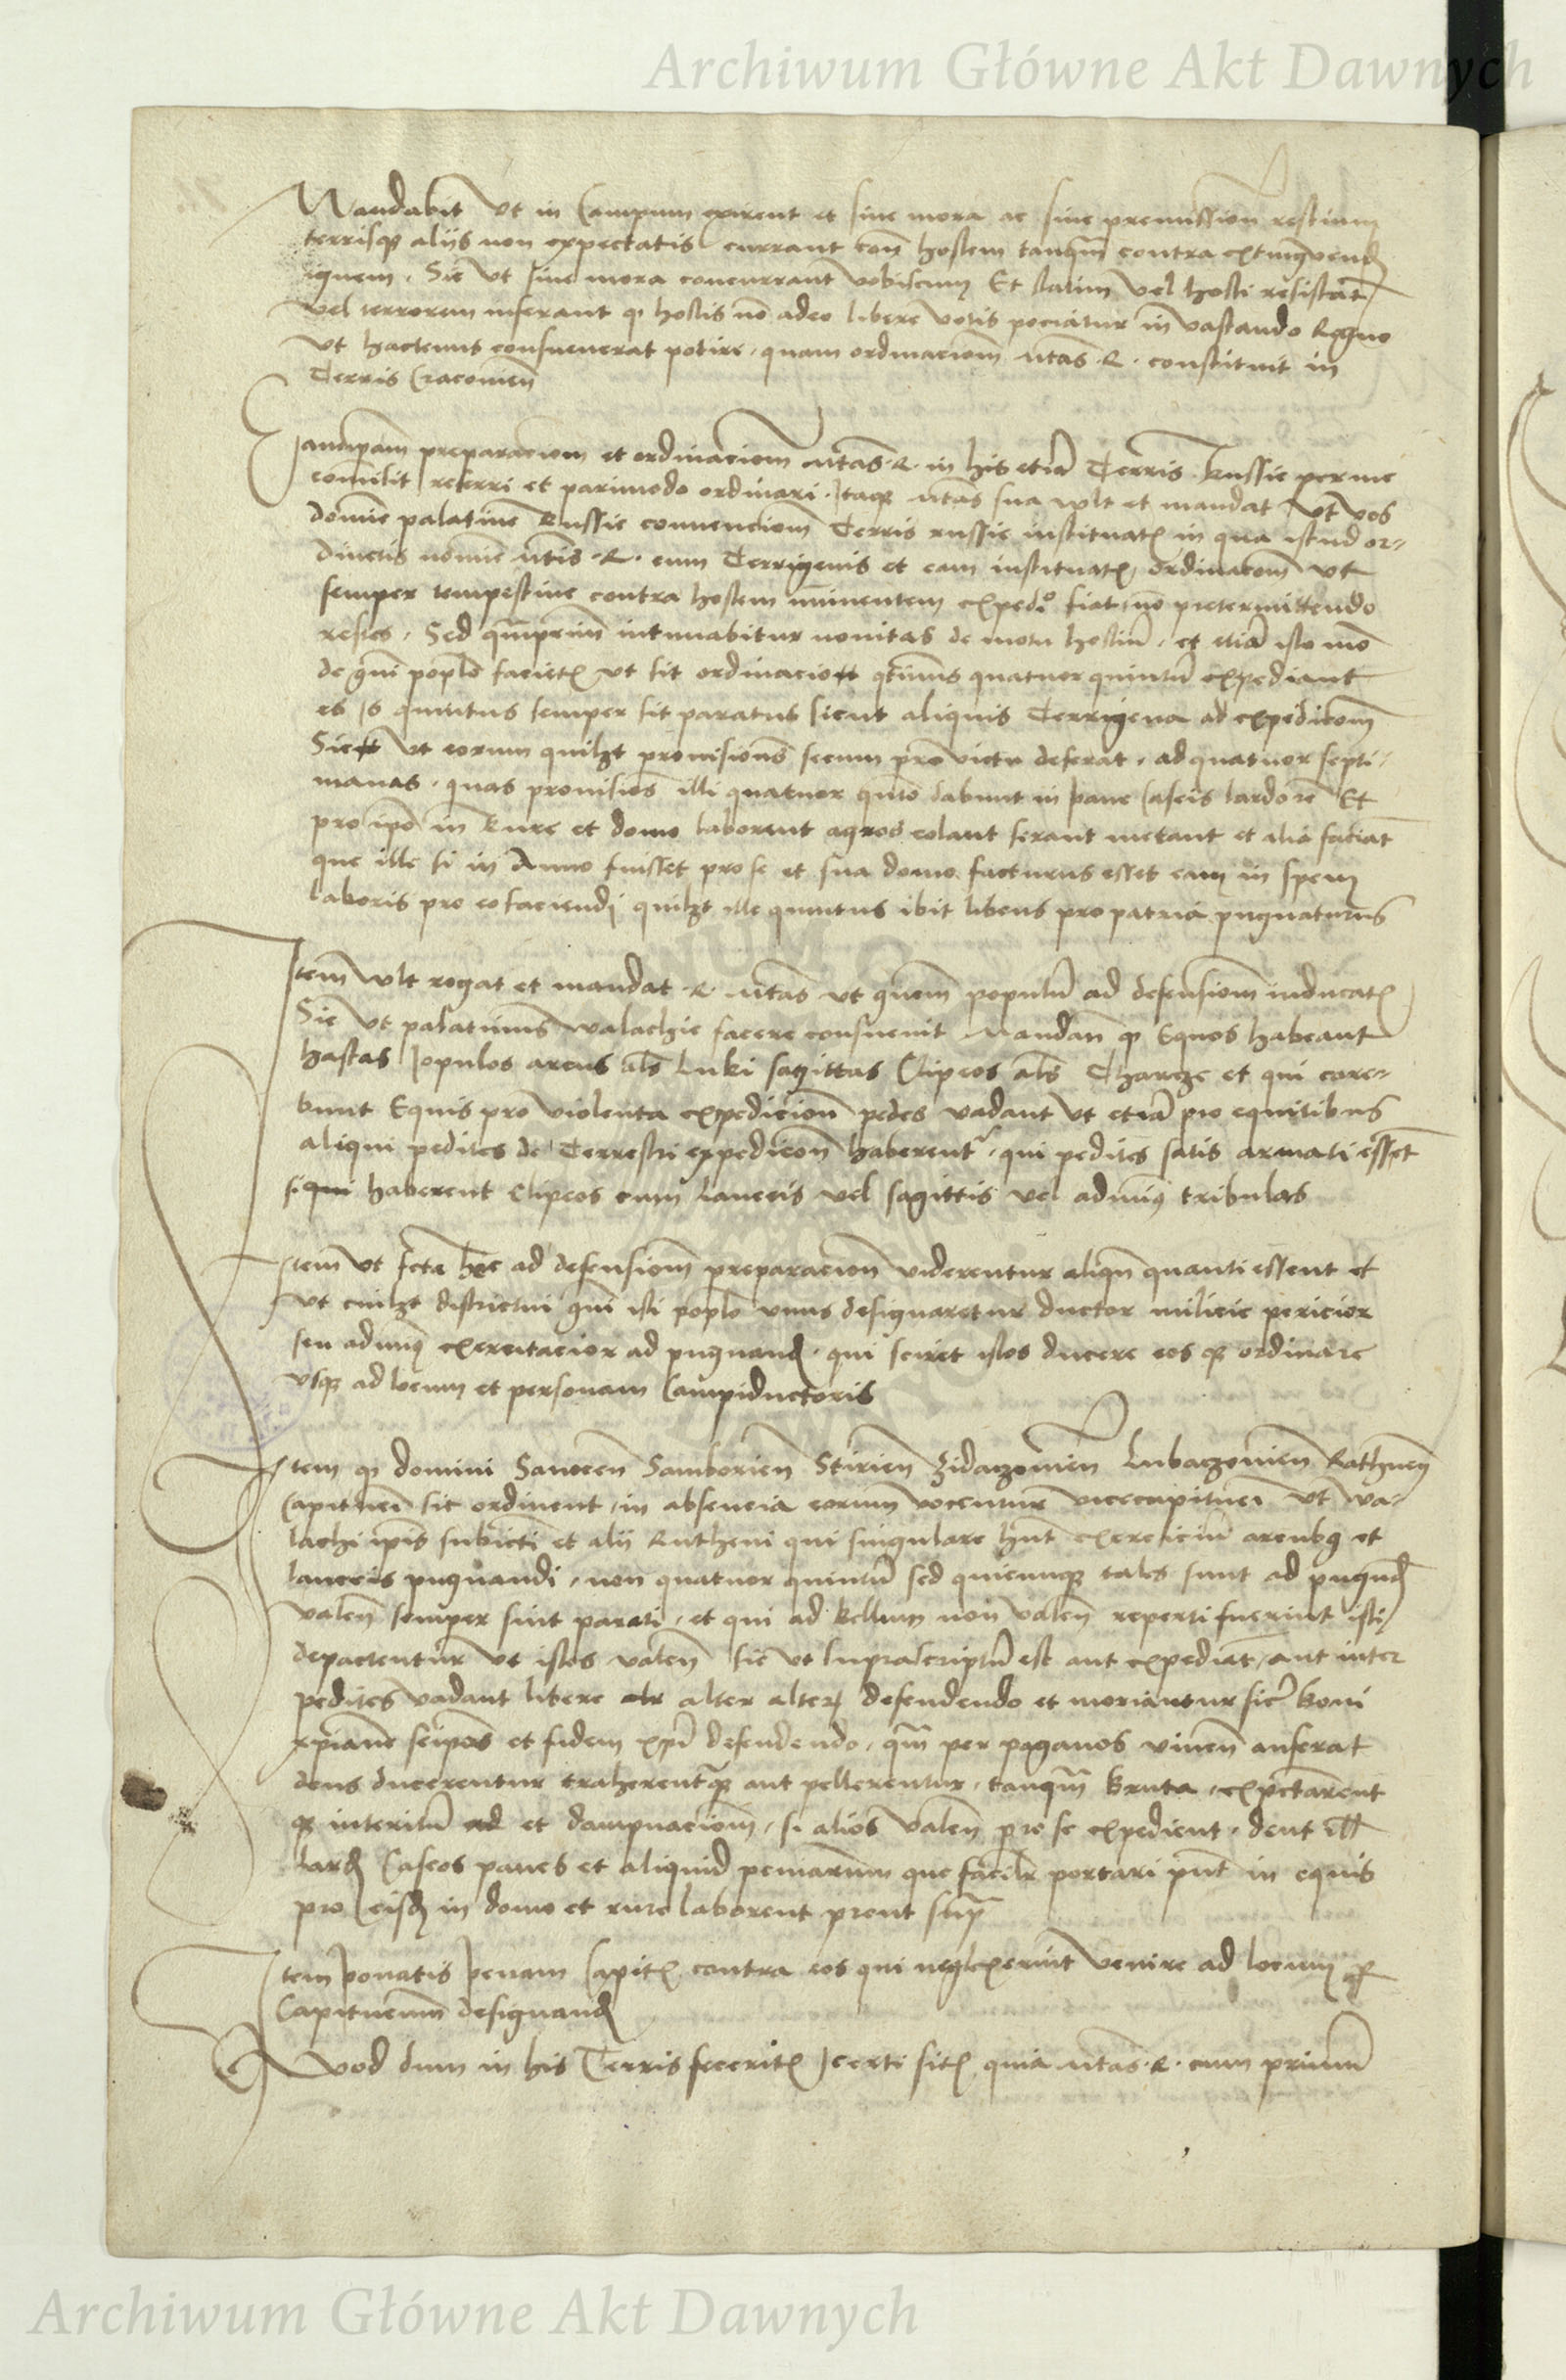 Archiwum Główne Akt Dawnych
Mandabit vt in Campum exirent et sine mora ac sine premission restium
terrisqȝ alijs non expectatis currant con hostem tanqm contra extingwend
ignem. Sic vt sine mora concurrant vobiscum Et statim vel hosti resistat
vel terrorem inferant qȝ hostis no adeo libere votis pociatur in vastando Regno
vt hactenus consueuerat potire. quam ordinaciom Mtas .R. constituit in
Terris Cracouien
preparaciom et ordinaciom Mtas .R. in his etia Terris Russie per me
comisit referri et parimodo ordinari. Itaqȝ Mtas sua vult et mandat vt vos
domine palatine Russie conuenciom Terris russie instituatis in qua istud or-
dinetis nomine Mtis .R. cum Terrigenis et eam instituatis ordinacom vt
semper tempestiue contra hostem iminentem expedio fiat no pretermittendo
restes. Sed qmprimu intimabitur nouitas de motu hostiu. et etia isto mo
de gnu poplo facietis vt sit ordinacio qtinus quatuor quintu expediant
is quintus semper sit paratus sicut aliquis Terrigena ad expedicom
Sic vt eorum quilzt prouisions secum pro victu deferat. ad quatuor septi-
manas. quas prouisios illi quatuor qnto dabunt in pane Caseis lardo re Et
pro ipo in Rure et domo laborent agros colant serant metant et alia faciat
que ille si in Anno fuisset pro se et sua domo facturus esset eam in spem
laboris pro eo faciendi quilzt ille quintus ibit libens pro patria pugnaturus
Item vult rogat et mandat .R. Mtas vt gnem populu ad defensiom inducatis
Sic vt palatinus walachie facere consueuit Mandan qȝ Equos habeant
hastas Iopulos arcus als Luki sagittas Clipeos als Tharcze et qui care-
bunt Equis pro violenta expedicion pedes vadant vt etia pro equitibus
aliqui pedites de Terrestri expedicon haberent. qui pedites satis armati essent
si haberent Clipeos cum lanceis vel sagittis vel adminus tribulas
Item vt fcta hec ad defensiom preparacion viderentur aliqn quanti essent et
vt cuilzt districtui gni isti poplo vnus designaretur ductor milicie pericior
seu adminus exercitacior ad pugnand. qui sciret istos ducere eos qȝ ordinare
vsqȝ ad locum et personam Campiductoris
Item qȝ domini Sanocen Samborien Strien Zidaczowien Lubaczowien Rathnen
Capitnei sic ordinent. in absencia eorum vocentur vicecapitnei vt wa-
lachi ipis subiecti et alij Rutheni qui singulare hnt exerciciu arcubus et
lanceis pugnandi. non quatuor quintu sed quicunqȝ tales sunt ad pugnd
valen semper sint parati. et qui ad bellum non valen reperti fuerint isti
depactentur vt istos valen sic vt suprascriptu est aut expediet. aut inter
pedites vadant libere alter alter defendendo et moriantur sict boni
xpiane seipos et fidem xpi defendendo. qm per paganos viuen auferat
dens ducerentur traherenturqȝ aut pellerentur. tanqm bruta. expctarent
qȝ interitu et dampnaciom. si alios valen pro se expedient. dent ill
lard Caseos panes et aliquid peniarum que facilr portari pnt in equis
pro eisd in domo et rure laborent prout supra
Item ponatis penam Capitis contra eos qui neglexerint venire ad locum p
Capitneum designand
Quod dum in his Terris feceritis certi sitis quia Mtas .R. cum primu
Archiwum Główne Akt Dawnych